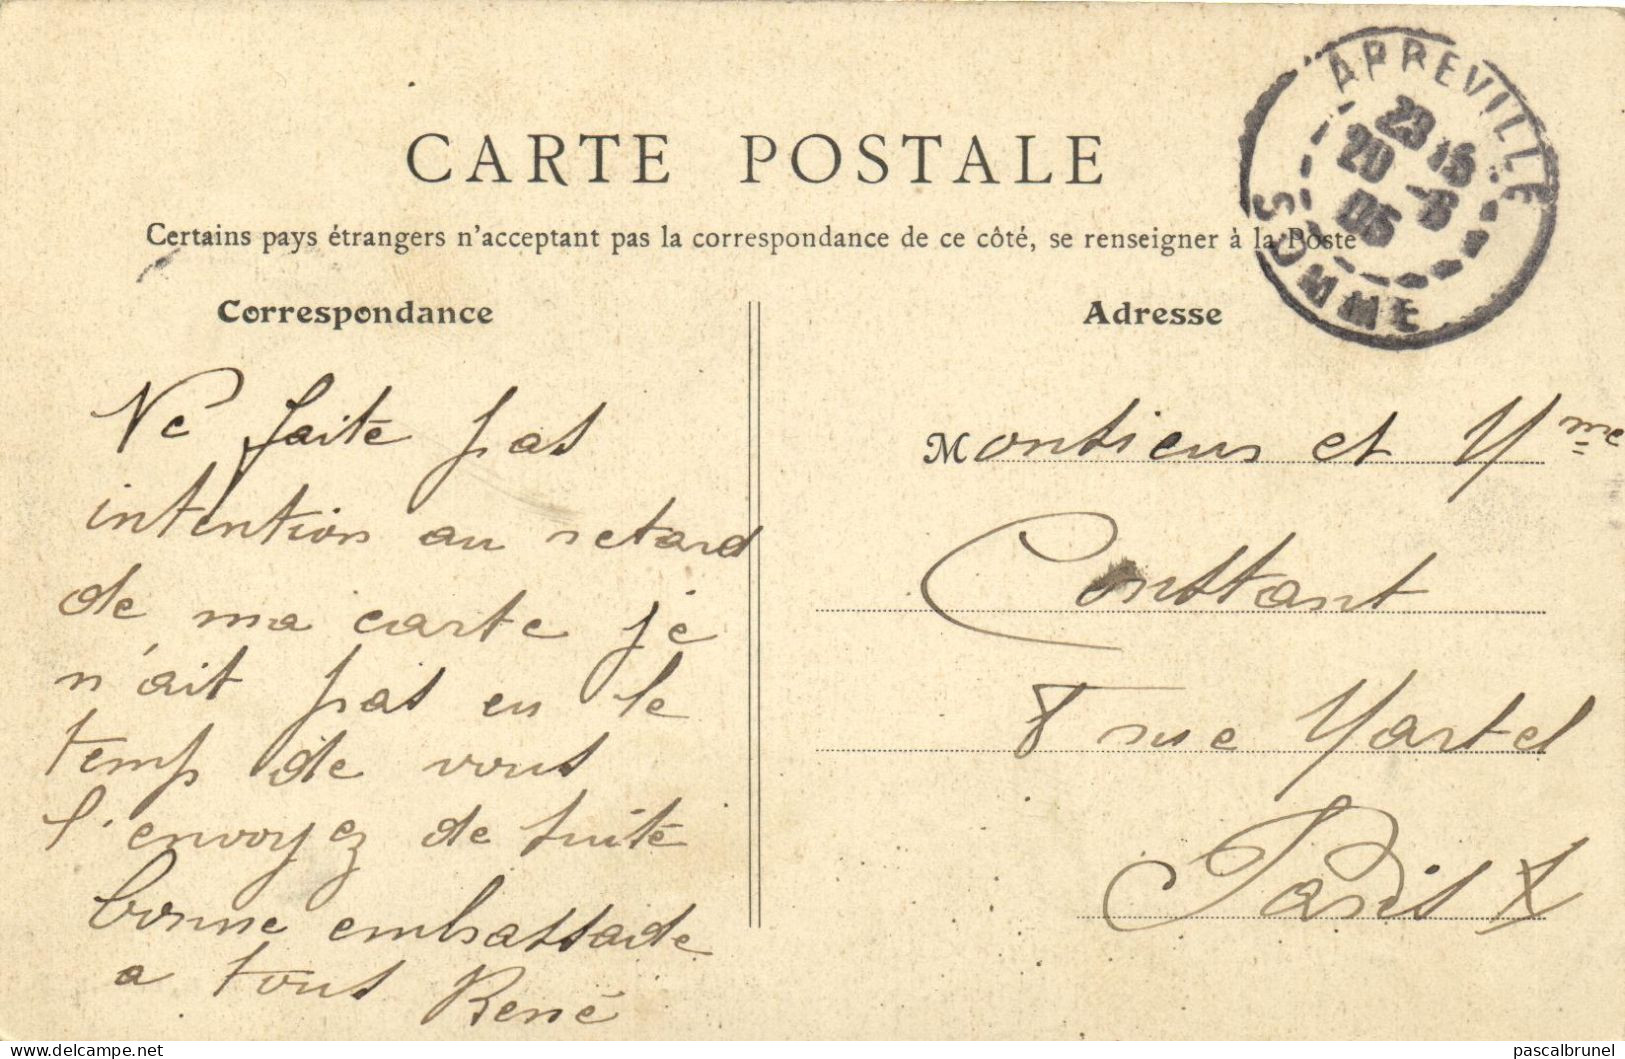 CARTE POSTALE
Certains pays étrangers n'acceptant pas la correspondance de ce côté, se renseigner à la Poste
APPEVILLE
23 15
20 -6
05
SOMME
Correspondance
Ne faite pas
intention au retard
de ma carte je
n'ait pas eu le
temp de vous
l'envoyez de suite
bonne embrassade
a tous René
Adresse
Monsieur et Mme
Constant
8 rue Martel
Paris X
pascalbrunel
delcampe.net